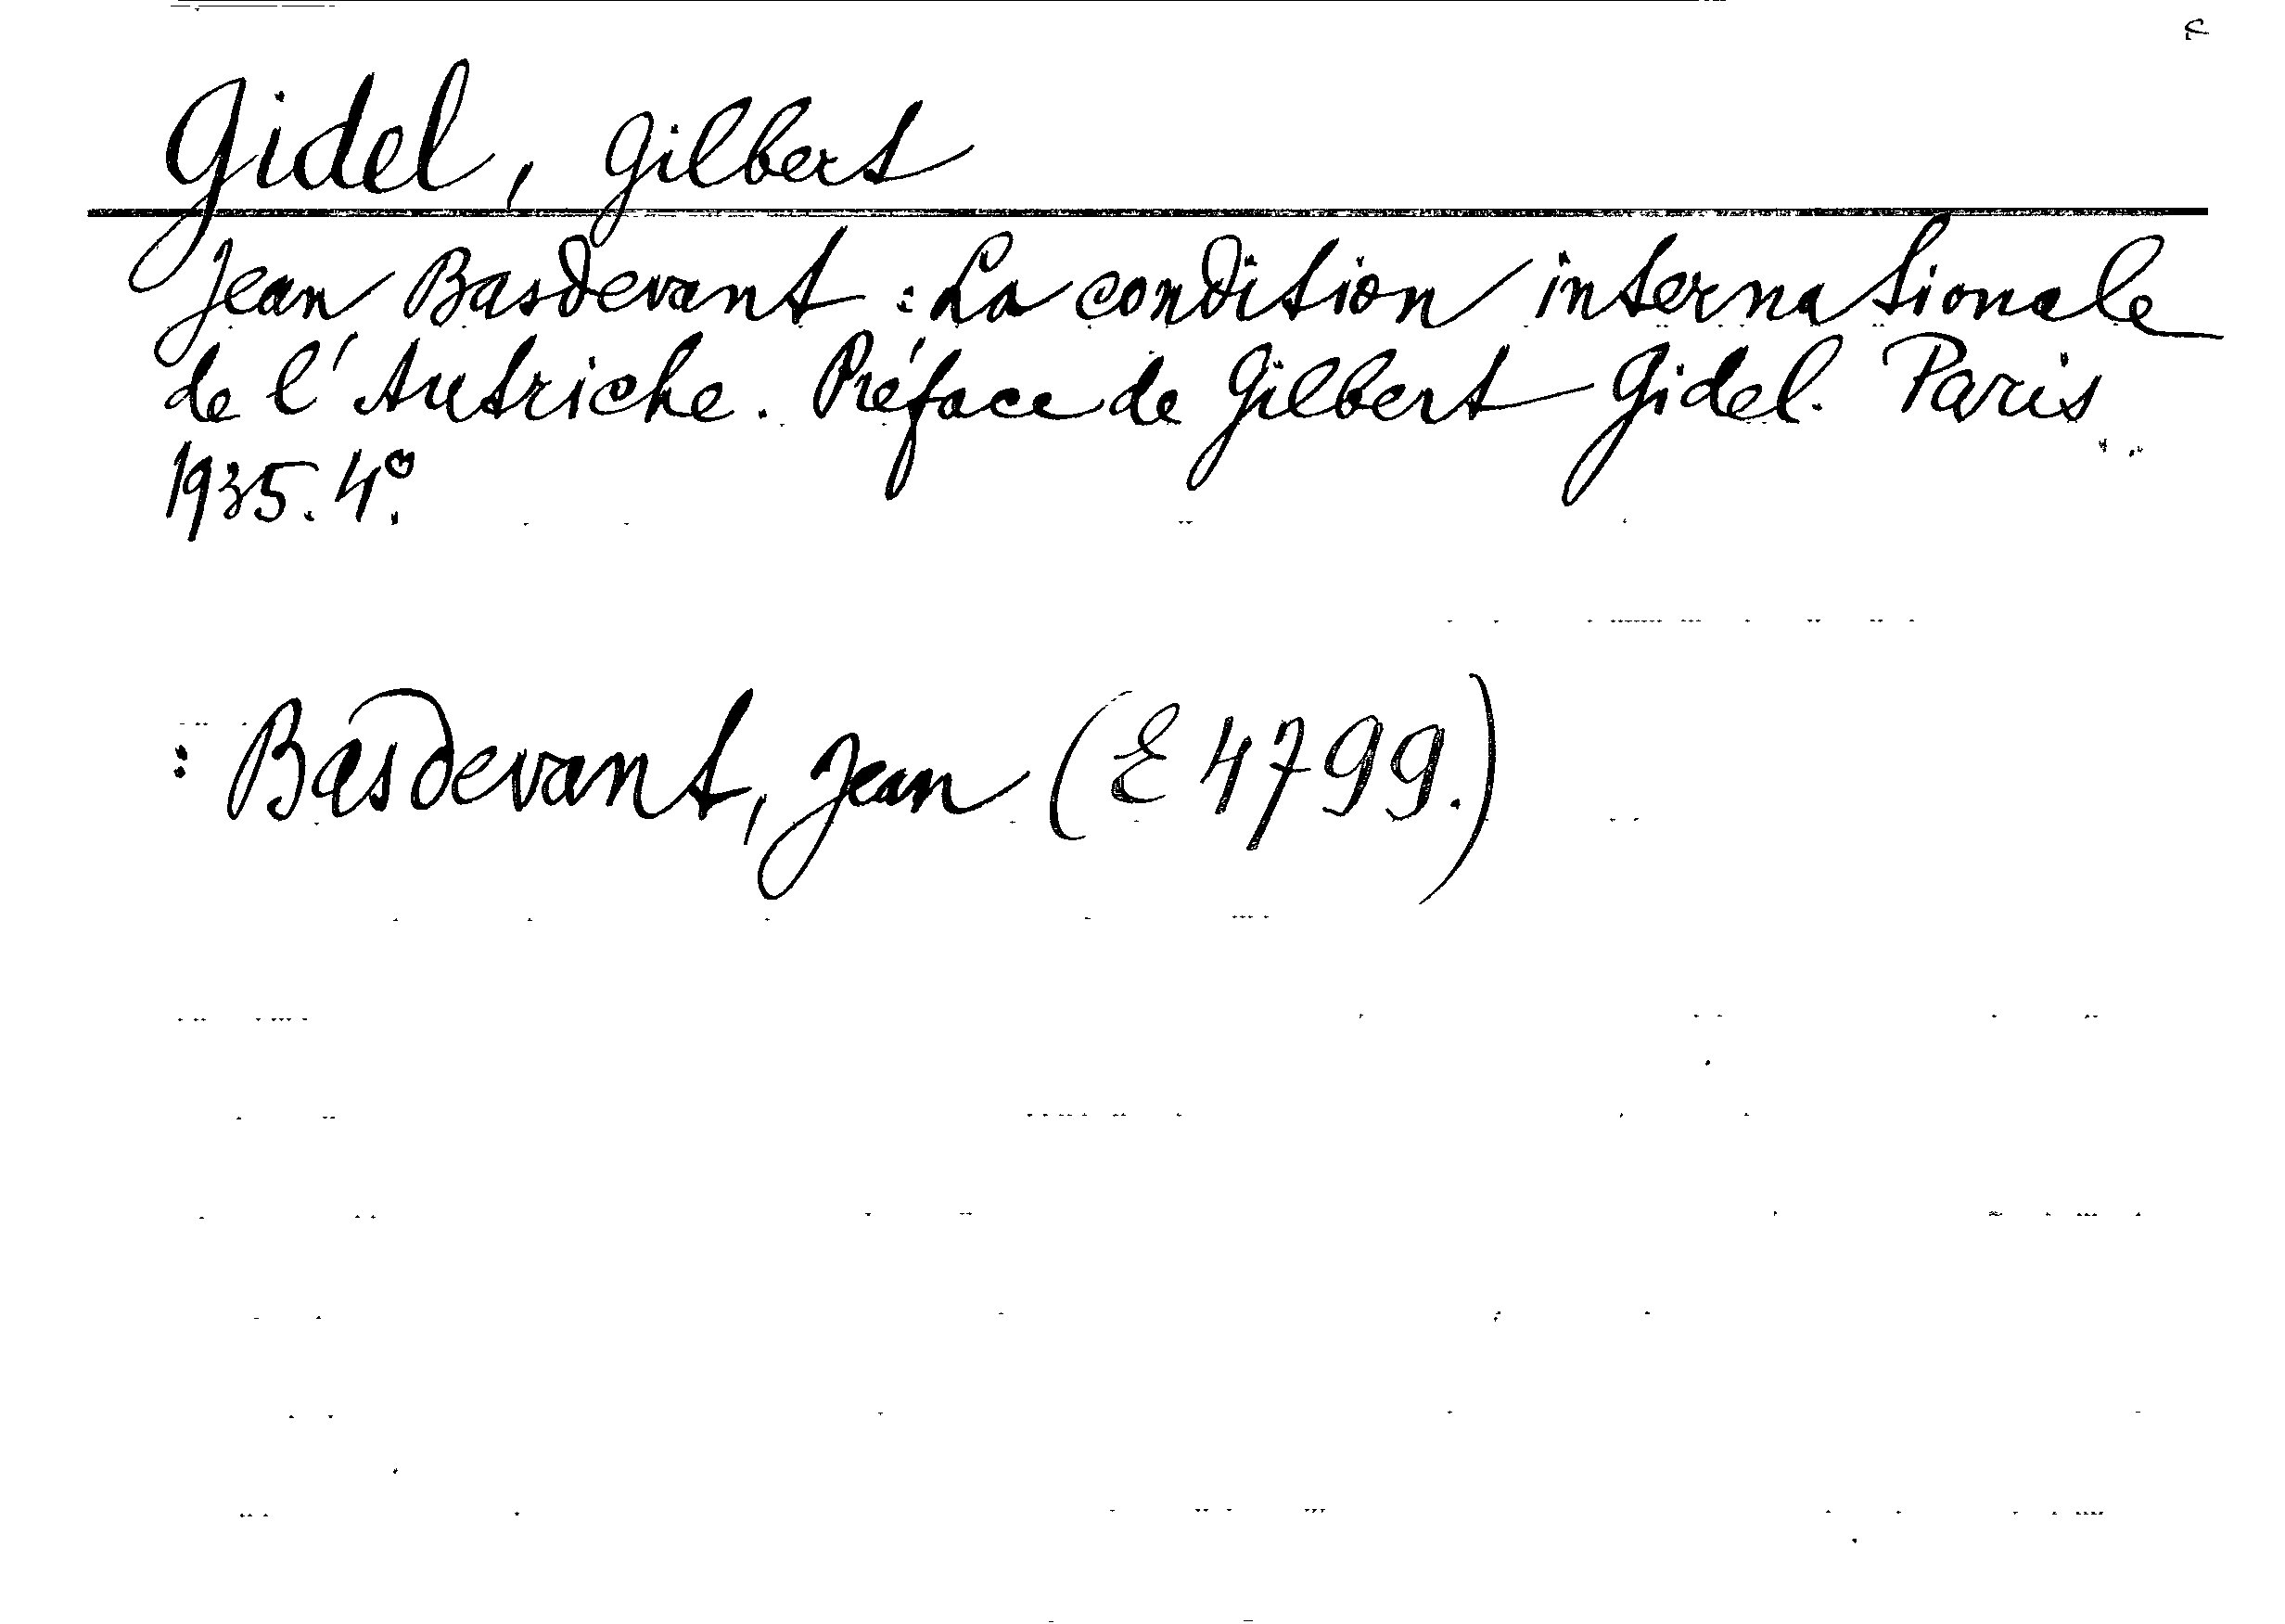 Gidel, Gilbert
Jean Basdevant : La condition internationale
de l'Autriche. Préface de Gilbert Gidel. Paris
1935. 4°.
: Basdevant, Jean (E 4799.)